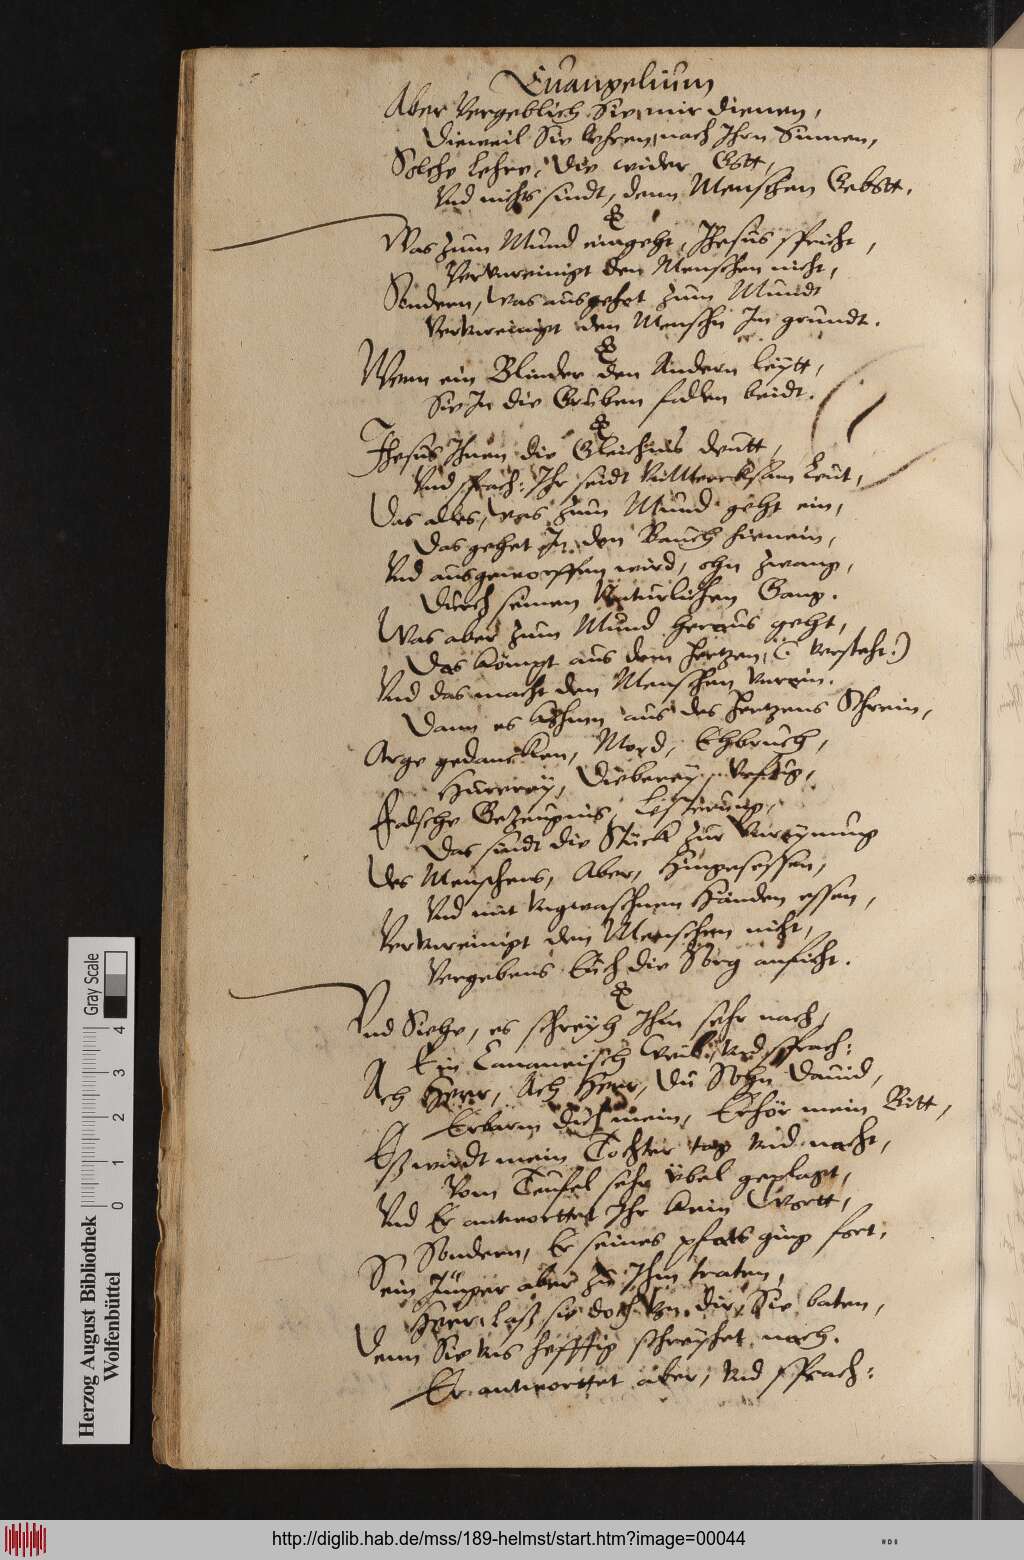 Euangelium
Aber Vergeblich Sie mir dienen,
Dieweil Sie lehren, nach Ihrn Sinnen,
Solche Lehre, die wider Gott,
Vnd nichts sindt, denn Menschen Gebott.
Was zum Mund eingeht, Jhesus spricht,
Vervnreinigt den Menschen nicht,
Sondern, Was ausgehet zum Mundt
Vervnreinigt den Menschn Im grundt.
Wenn ein Blinder den Andern leytt,
Sie In die Gruben fallen beidt.
Jhesus Ihnen die Gleichnus deutt,
Vnd sprach: Ihr seidt Leut,
Das alles, was zum Mund geht ein,
Das gehet In den Bauch hienein,
Vnd ausgeworffen wird, ohn zwang,
Durch seinen Naturlichen Gang.
Was aber zum Mund heraus geht,
Das kömpt aus dem Hertzen, (: versteht:)
Vnd das macht den Menschen Vnrein.
Dann es kohmn aus des Hertzens Schrein,
Arge gedancken, Mord, Ehbruch,
Hurerey, Dieberey,
Falsche Gezeugnis, Lesterung,
Das sindt die Stück zur Vnreynung
Des Menschens, Aber, Hingesessen,
Vnd mit Vngwaschnen Händen essen,
Vervnreinigt den Menschen nicht,
Vergebens Euch die Sorg anficht.
Vnd Siehe, es schreyh Ihm sehr nach,
Ein Cananeisch Weib, Vnd sprach:
Ach Herr, Ach Herr, Du Sohn Dauid,
Erbarm dich mein, Erhör mein Bitt,
Eß wirdt mein Tochter tag Vnd nacht,
Vom Teufel sehr übel geplagt,
Vnd Er antworttet Ihr kein Wortt,
Sondern, Er seines pfats ging fort.
Sein Jünger aber zu Ihm traten,
Herr, Laß sie doch von dir, Sie baten,
Denn Sie vns hefftig schreyhet nach.
Er antworttet aber, Vnd sprach:
Gray Scale
0 1 2 3 4
Herzog August Bibliothek
Wolfenbüttel
http://diglib.hab.de/mss/189-helmst/start.htm?image=00044